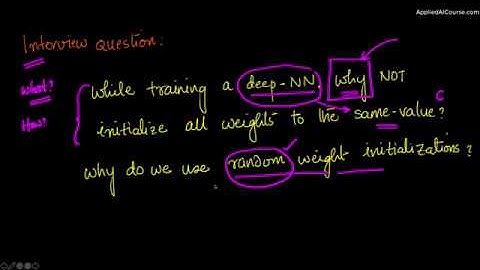 AppliedAICourse.com
Interview question:
what? while training a deep-NN, why NOT
C
How? initialize all weights to the same-value?
why do we use random weight initializations?